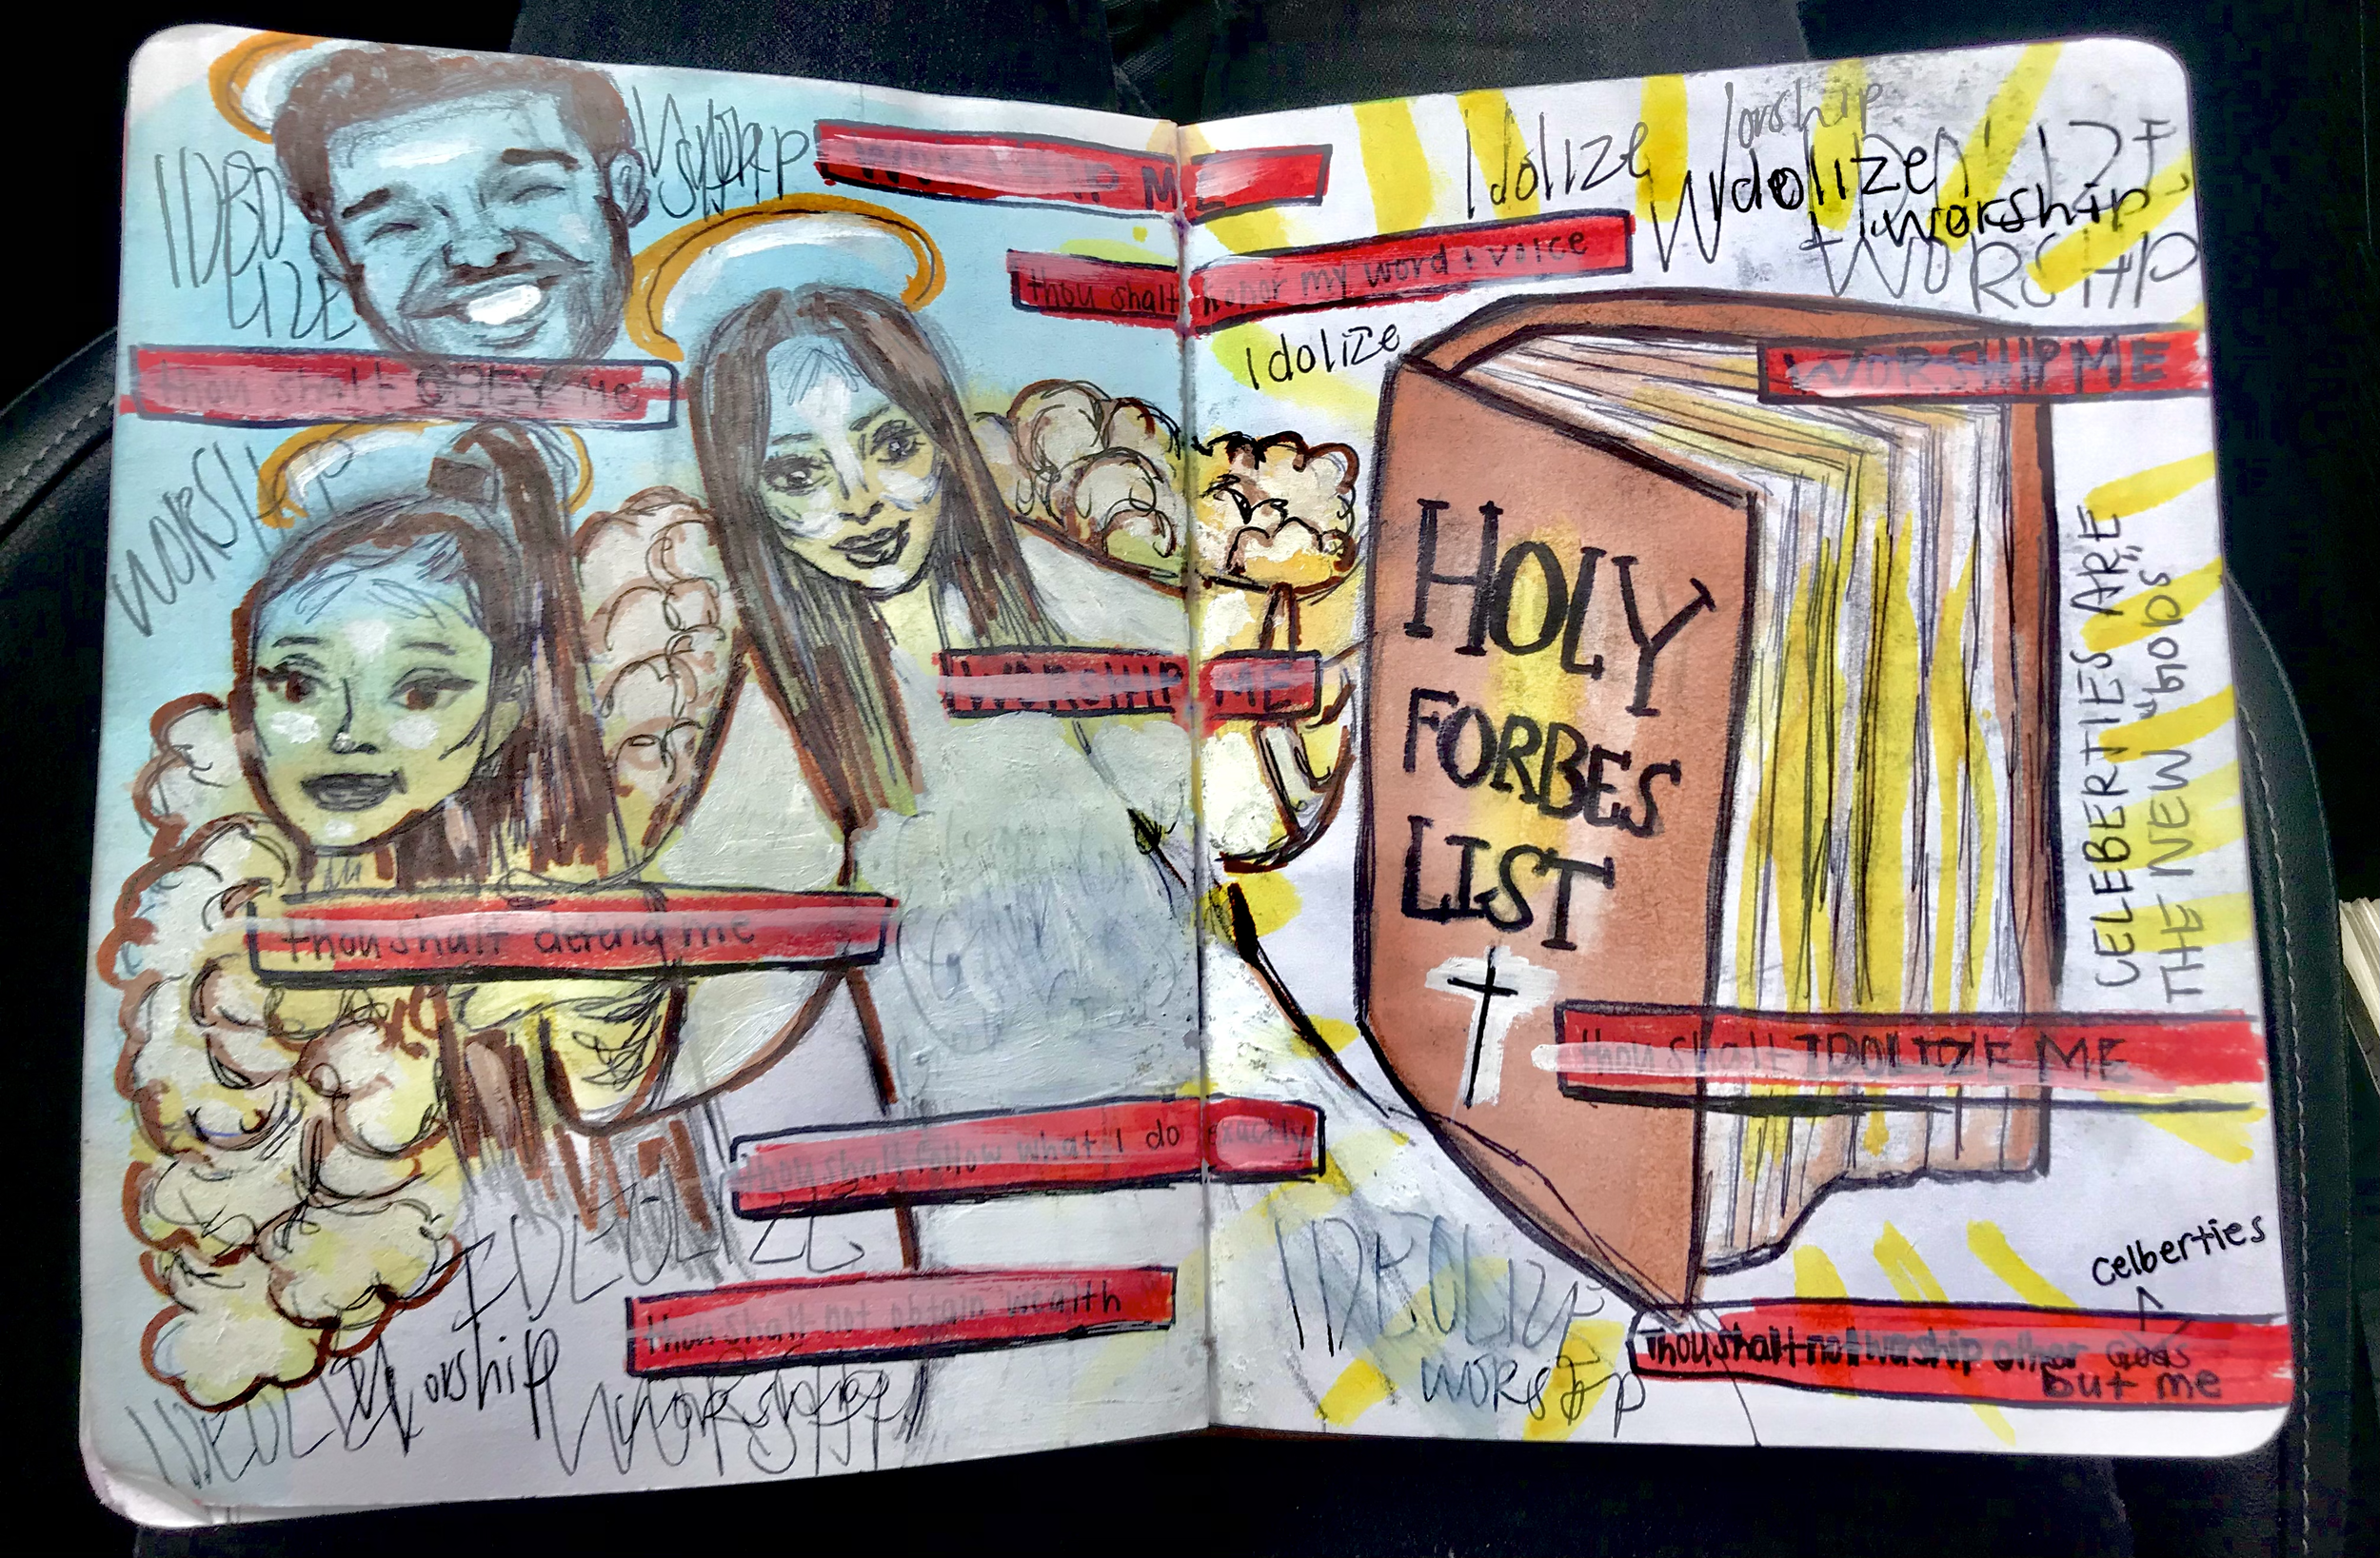 Worship
WORSHIP ME
Idolize
Worship
Idolize
worship
WORSHIP
thou shalt honor my word + voice
Idolize
thou shalt OBEY me
WORSHIP ME
WORSHIP
HOLY
FORBES
LIST
WORSHIP ME
CELEBERTIES ARE
THE NEW "gods"
thou shalt defend me
thou shalt IDOLIZE ME
thou shalt follow what I do exactly
IDEOLIZE
thou shalt not obtain wealth
IDEOLIZE
worship
celberties
Thou shalt not worship other Gods
but me
Worship
Worship